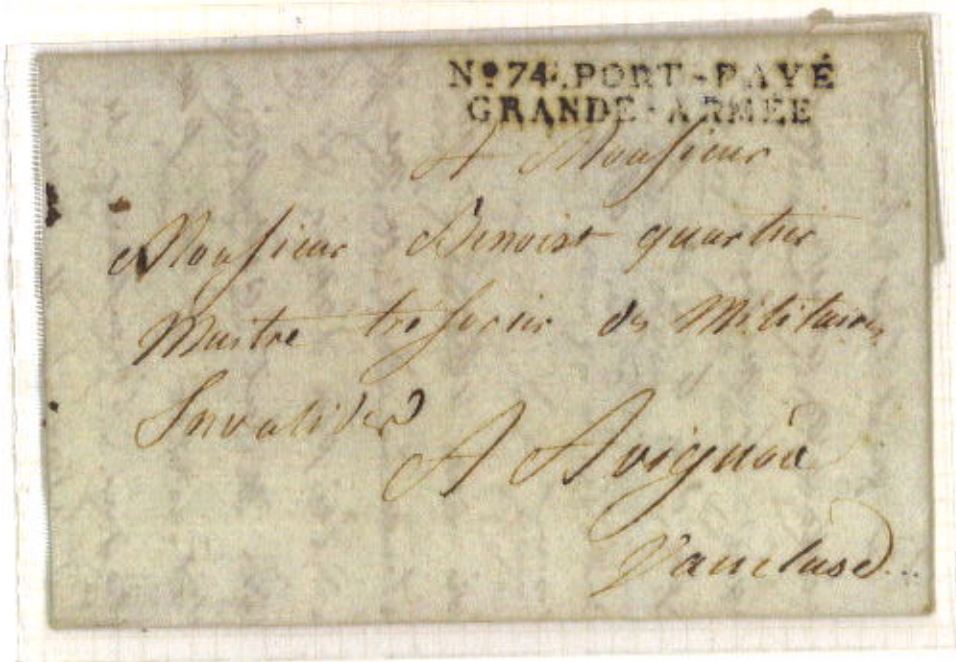 Nº 74. PORT-PAYÉ
GRANDE-ARMÉE
A Monsieur
Monsieur Benoist quartier
Maitre trésorier des Militaires
Invalides
A Avignon
Vaucluse...